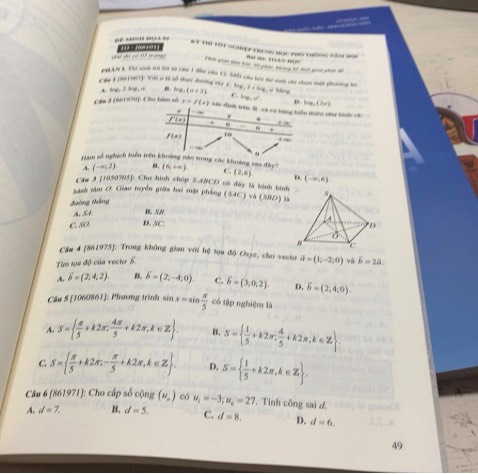 ĐỀ MINH HỌA 01
KỲ THI TỐT NGHIỆP TRUNG HỌC PHỔ THÔNG NĂM
[ID - 108101]
PHẦN I. Thí sinh trả lời từ câu 1 đến câu 12. Mỗi câu hỏi thí sinh chỉ chọn một phương án.
Câu 1 Với a là số thực dương tùy ý, bằng
B. (a+2).
C.
D.
Câu 2 Cho hàm số y = f(x) xác định trên ℝ và có bảng biến thiên như hình vẽ:
f'(x) + 0 - 0 +
f(x)
Hàm số nghịch biến trên khoảng nào trong các khoảng sau đây?
A. (-∞;2).
B. (6;+∞).
C. (2;6).
D. (-∞;6).
Câu 3 [1050705]: Cho hình chóp S.ABCD có đáy là hình bình
hành tâm O. Giao tuyến giữa hai mặt phẳng (SAC) và (SBD) là
đường thẳng
A. SA.
B. SB.
C. SO.
D. SC.
S
D
O
B
C
Câu 4 [861975]: Trong không gian với hệ tọa độ Oxyz, cho vectơ a⃗ = (1;-2;0) và b⃗ = 2a⃗.
Tìm tọa độ của vectơ b⃗.
A. b⃗ = (2;4;2).
B. b⃗ = (2;-4;0).
C. b⃗ = (3;0;2).
D. b⃗ = (2;4;0).
Câu 5 [1060861]: Phương trình sin x = sin π/5 có tập nghiệm là
A. S = {π/5 + k2π; 4π/5 + k2π, k ∈ ℤ}.
B. S = {1/5 + k2π; 4/5 + k2π, k ∈ ℤ}.
C. S = {π/5 + k2π; -π/5 + k2π, k ∈ ℤ}.
D. S = {1/5 + k2π, k ∈ ℤ}.
Câu 6 [861971]: Cho cấp số cộng (uₙ) có u₁ = -3; u₆ = 27. Tính công sai d.
A. d = 7.
B. d = 5.
C. d = 8.
D. d = 6.
49